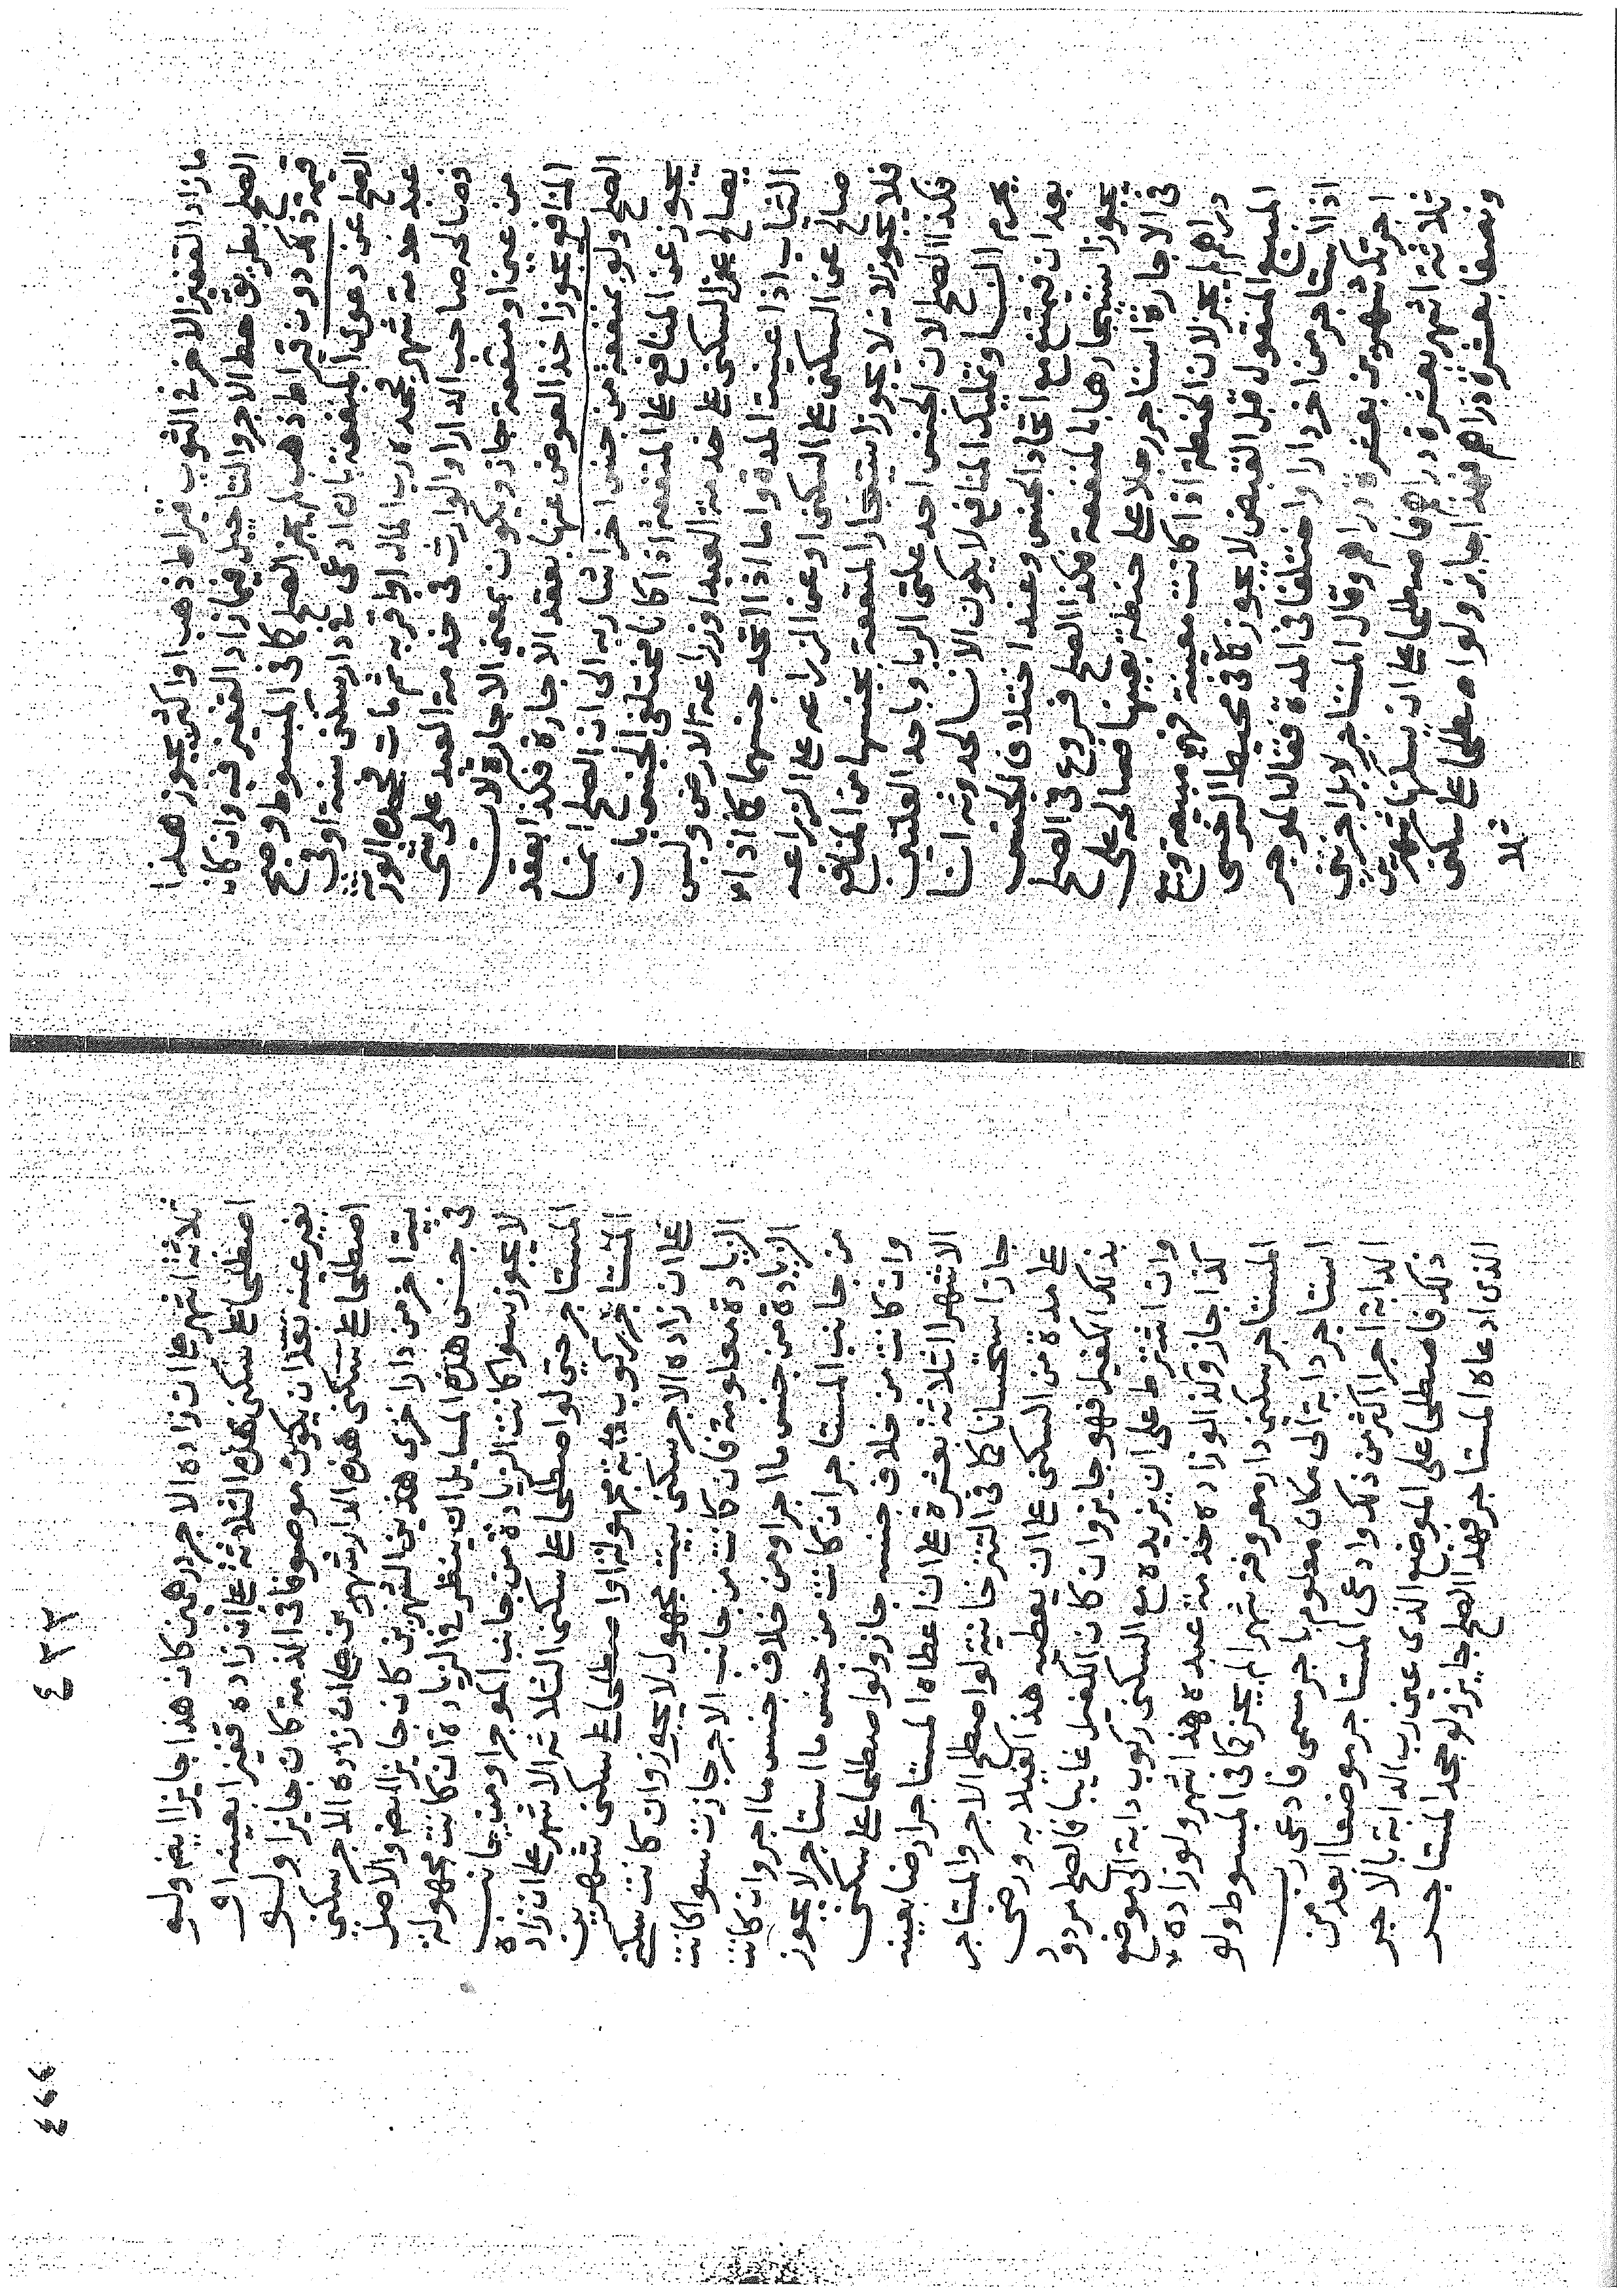 مازاد القفيز الاخر في الثوب قيراط ذهب او اكثر يجوز هذا
الصلح بطريق حط الاجر والتاجيل فيما زاد القفيز فيه وان كان
قيمة ذلك دون قيراط ذهب لم يجز الصلح كما في المبسوط وصح
الصلح عن دعوى المنفعة بان ادعى في دار سكنى سنة اوفى
عبد خدمة شهر فجحده رب المال او اقر به ثم مات الورثة
فصالحه صاحب الدار او الوارث في خدمة العبد على شي
من عين او منفعة جاز ويكون بمعنى الاجارة لان
المنافع يجوز اخذ العوض عنها بعقد الاجارة فكذا بعقد
الصلح ولو بمنفعة من جنس اخر اشار به الى ان الصلح انما
يجوز عن المنافع على المنفعة اذا كانا مختلفي الجنس بان
يصالح عن السكنى على خدمة العبد او زراعة الارض ولبس
الثياب اذا عينت المدة واما اذا اتحد جنسهما كما اذا
صالح عن السكنى على السكنى او عن الزراعه على الزراعه
فلا يجوز لانه لا يجوز استيجار المنفعة بجنسها من المنافع
فكذا الصلح لان الجنس احد علتي الربا وباحد العلتين
يحرم النسا وتمليك المنافع لا يكون الا نسا لحدوثه انا
بعد ان فيمتنع مع اتحاد الجنس وعند اختلاف الجنس
يجوز استيجارها بالمنفعة فكذا الصلح فروع في الصلح
في الاجارة استاجر رجلا على حنطة بعينها فصالحه على
دراهم لم يجز لان الحنطة اذا كانت معينة فهو مبيعة وبيع
المبيع المنقول قبل القبض لا يجوز كما في محيط السرخسى
اذا استاجر من اخر دارا واختلفا في المدة فقال الموجر
اجرتك شهرين بعشرة دراهم وقال المستاجر لا بل اجرتني
ثلاثة اشهر بعشرة دراهم فاصطلحا على ان يسكنها شهرين
ونصفا بعشرة دراهم فهذا جايز ولو اصطلحا على سكنى
ثلا
ثلاثة اشهر على ان زاده الاجر درهمين كان هذا جايزا ايضا ولو
اصطلحا على سكنى هذه الثلاثة على ان زاده قفيزا بعينه او
بغير عينه بعد ان يكون موصوفا في الذمة كان جايزا ولو
اصطلحا على سكنى هذه الدار شهرين على ان زاده الاجر سكنى
بيت اخر من دار اخرى هذين الشهرين كان جايزا ايضا والاصل
في جنس هذه المسايل ان ينظر في الزيادة ان كانت مجهولة
لا يجوز سوا كانت الزيادة من جانب الموجر او من جانب
المستاجر حتى لو اصطلحا على سكنى الثلاثة الاشهر على ان زاد
المستاجر ركوب دابة مجهولة او اصطلحا على سكنى شهرين
على ان زاده الاجر سكنى بيت مجهول لا يجوز وان كانت
الزيادة معلومة فان كانت من جانب الاجر جازت سوا كانت
الزيادة من جنس ما اجر او من خلاف جنس ما اجر وان كانت
من جانب المستاجر ان كانت من جنس ما استاجر لا يجوز
وان كانت من خلاف جنسه جاز ولو اصطلحا على سكنى
الاشهر الثلاثة بعشرة على ان اعطاه المستاجر ارضا بعينه
جاز استحسانا كما في التترخانية لو اصطلح الاجر والمستاجر
على مدة من السكنى على ان يعطيه هذا كفيلا به ورضى
بذلك الكفيل فهو جايز وان كان الكفيل غايبا فالصلح مردود
وان اشترط على ان يزيده مع السكنى ركوب دابة الى موضع
كذا جاز وكذا لو زاده خدمة عبده هذا شهر ولو زاده
المستاجر سكنى دار معروفة شهرا لم يجز كما في المبسوط ولو
استاجر دابة الى مكان معلوم باجر مسمى فادعى رب
الدابة اجرا اكثر من ذلك وادعى المستاجر موضعا ابعد من
ذلك فاصطلحا على الموضع الذي عين رب الدابة بالاجر
الذي ادعاه المستاجر فهذا الصلح جايز ولو جحد المستاجر
٤٣٣
٤٤٤